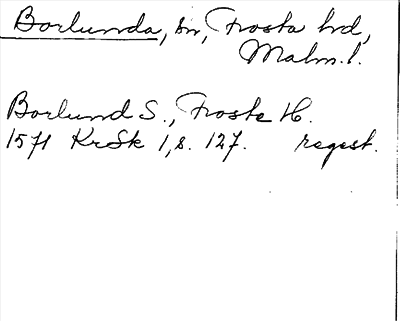 Borlunda, sn, Frosta hd,
Malm. l.
Borlund S., Froste H.
1571 KrSk 1, s. 127. regest.